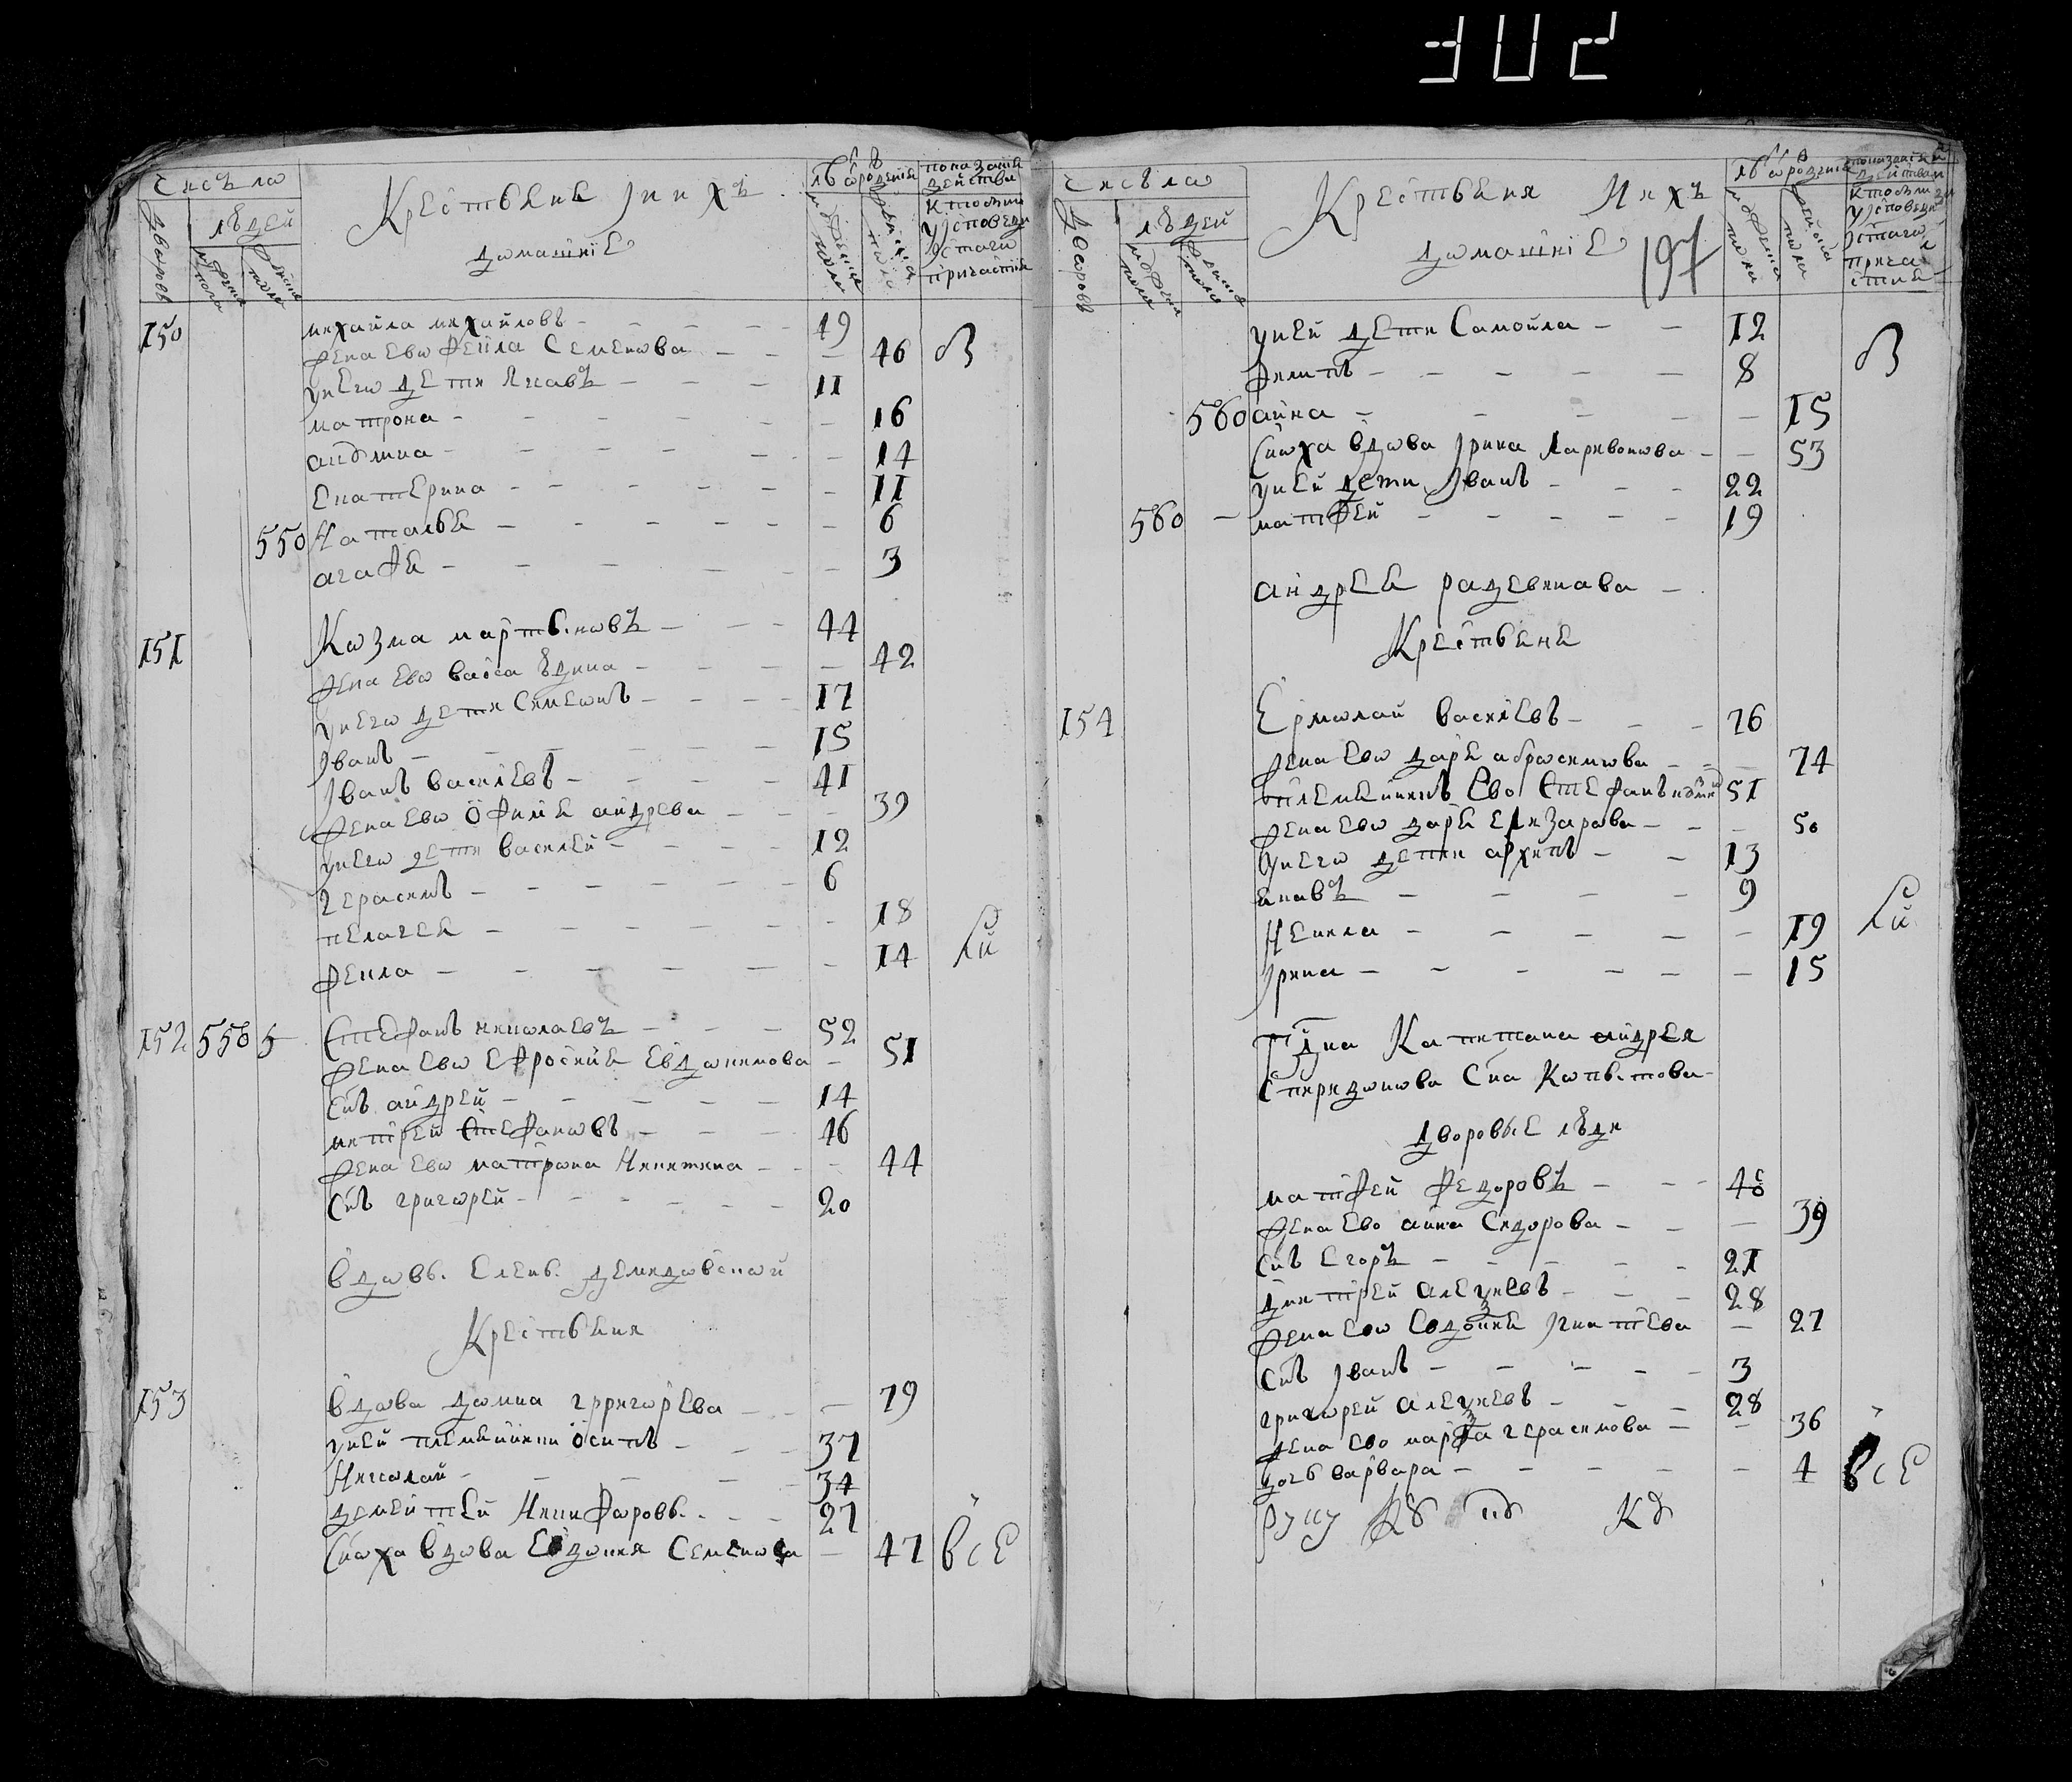 302
Число
дваровъ
людей
мужеска пола
женска пола
Крестьяне и ихъ
домашние
лѣта от рождения
мужеска пола
женска пола
показание действа
кто былъ
у исповеди
и стаго
причастия
150 михаила михайловъ - 49
жена ево фекла Семенова - 46 В
у него дети Яковъ - 11
матрона - 16
анна - 14
Екатерина - 11
550 Наталья - 6
агафя - 3
151 Козма мартыновъ - 44
жена ево васса - 42
у него дети Симеонъ - 17
Іванъ - 15
Іванъ василевъ - 41
жена ево офимя андрева - 39
у него дети василей - 12
герасимъ - 6
пелагея - 18
фекла - 14
152 556 5 Стефанъ николаевъ - 52
жена ево ефросиня Евдокимова - 51
Снъ андрей - 14
митрей Стефановъ - 46
жена ево матрона Никитина - 44
Снъ григорей - 20
вдовы Елены демидовской
Крестьяня
153 вдова домна григорева - 79
у ней племянники осипъ - 37
Николай - 34
дементей Никифоровъ - 27
Сноха вдова Евдокия Семенова - 47 все
Число
дваровъ
людей
мужеска пола
женска пола
Крестьяня И ихъ
домашние
197
лѣта от рождения
мужеска пола
женска пола
показание действа
кто былъ
у исповеди
и стаго
причастия
у ней дети Самойла - 12
филипъ - 8 В
560 анна - 15
Сноха вдова Ірина Ларивонова - 53
у ней дети Іванъ - 22
560 - матфей - 19
андрея радевинава -
Крестьяне
154 Ермолай василевъ - 76
жена ево даря абросимова - 74
племянникъ Ево Стефанъ 51
жена ево даря елизарова - 50
у него дети архипъ - 13
яковъ - 9
Некила - 19
Ірина - 15
Гдна Капитана андрея
Спиридонова Сна Копытова
дворовые люди
матфей федоровъ - 40
жена ево анна Сидорова - 39
Снъ Егоръ - 21
дмитрей алексеевъ - 28
жена ево Евдокия Ігнатева - 27
Снъ Іванъ - 3
григорей алексеевъ - 28
жена ево марфа герасимова - 36
дочь варвара - 4 все
руку